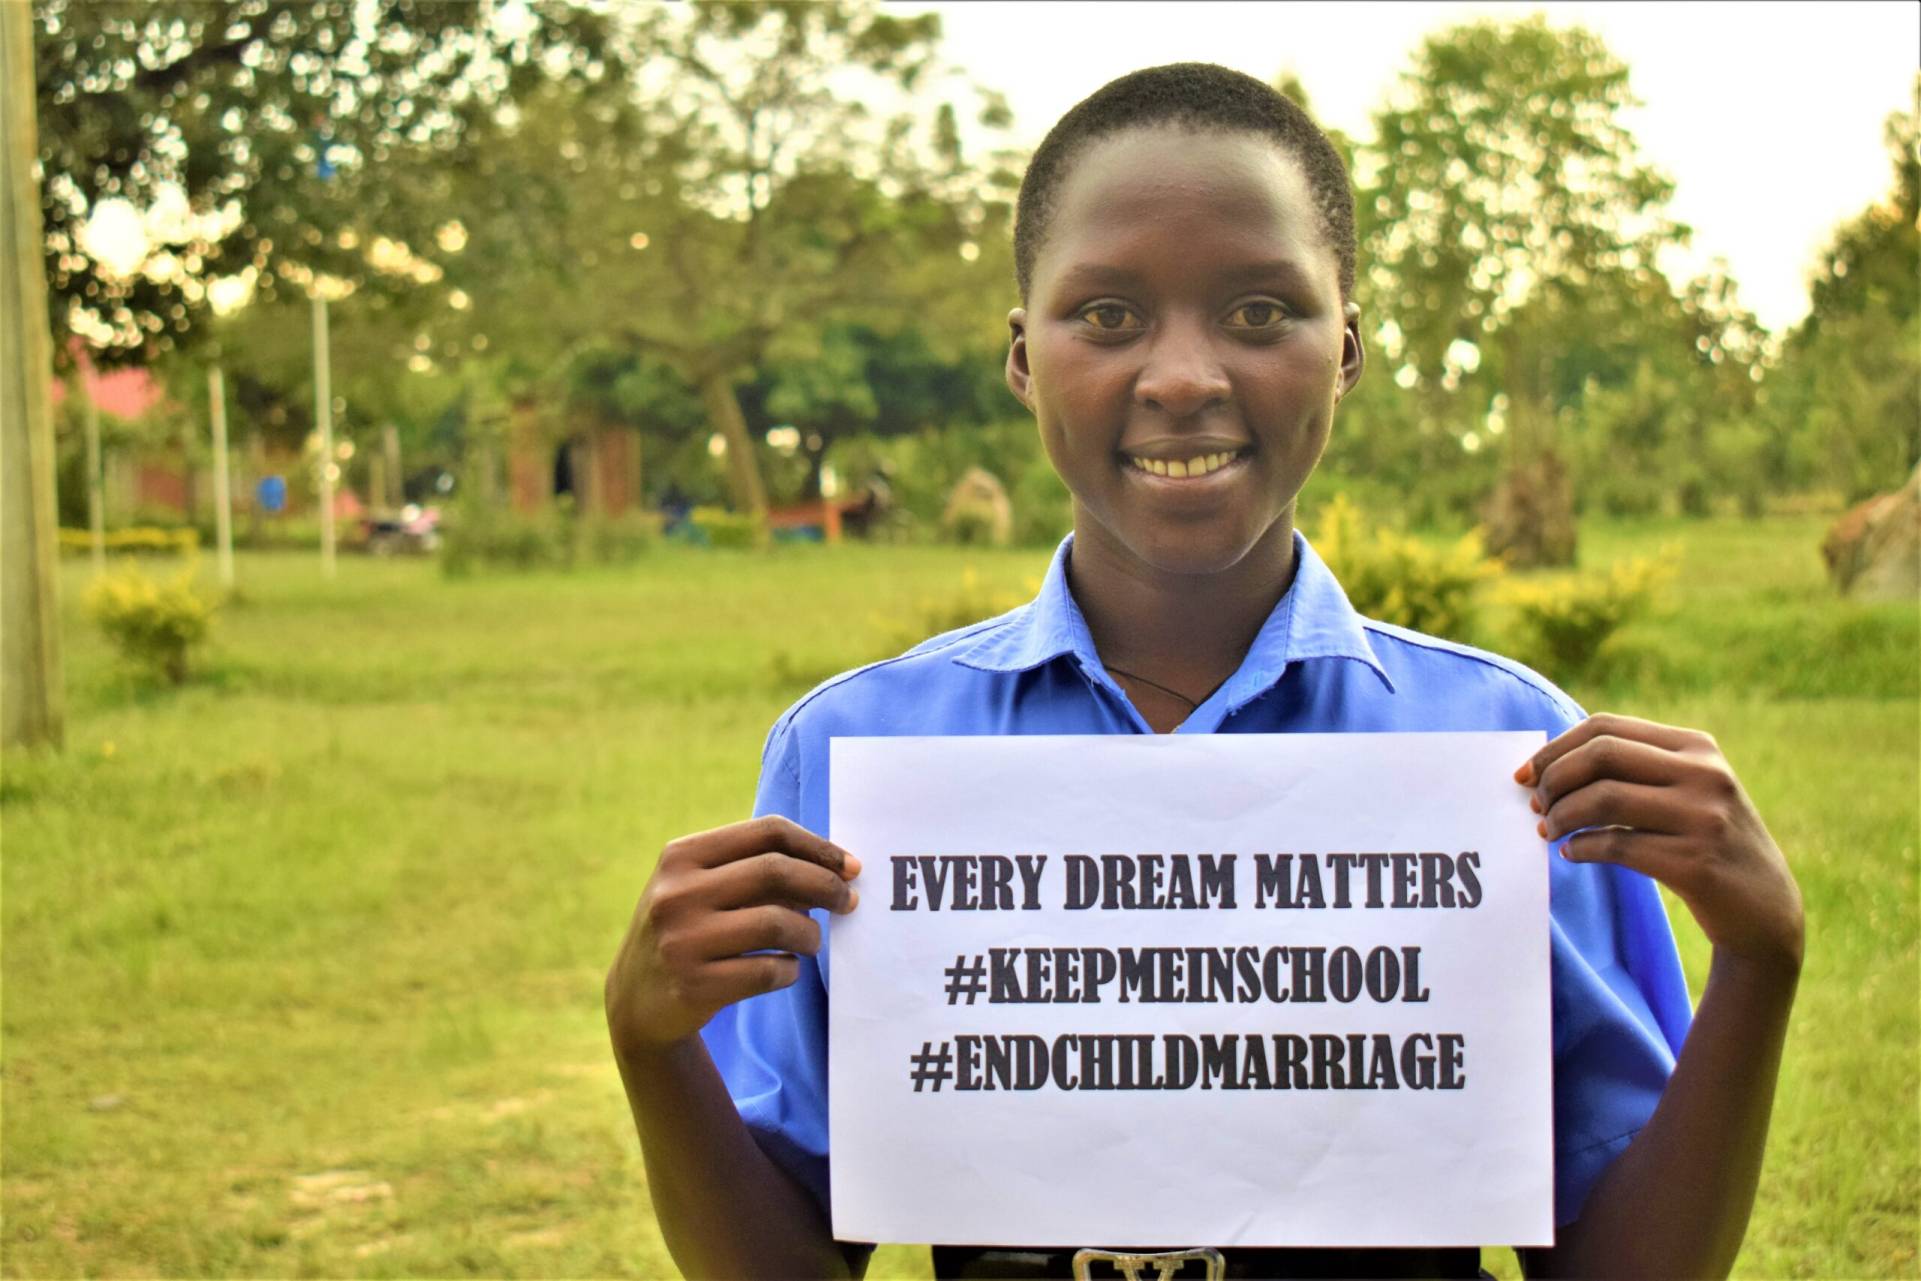 EVERY DREAM MATTERS
#KEEPMEINSCHOOL
#ENDCHILDMARRIAGE